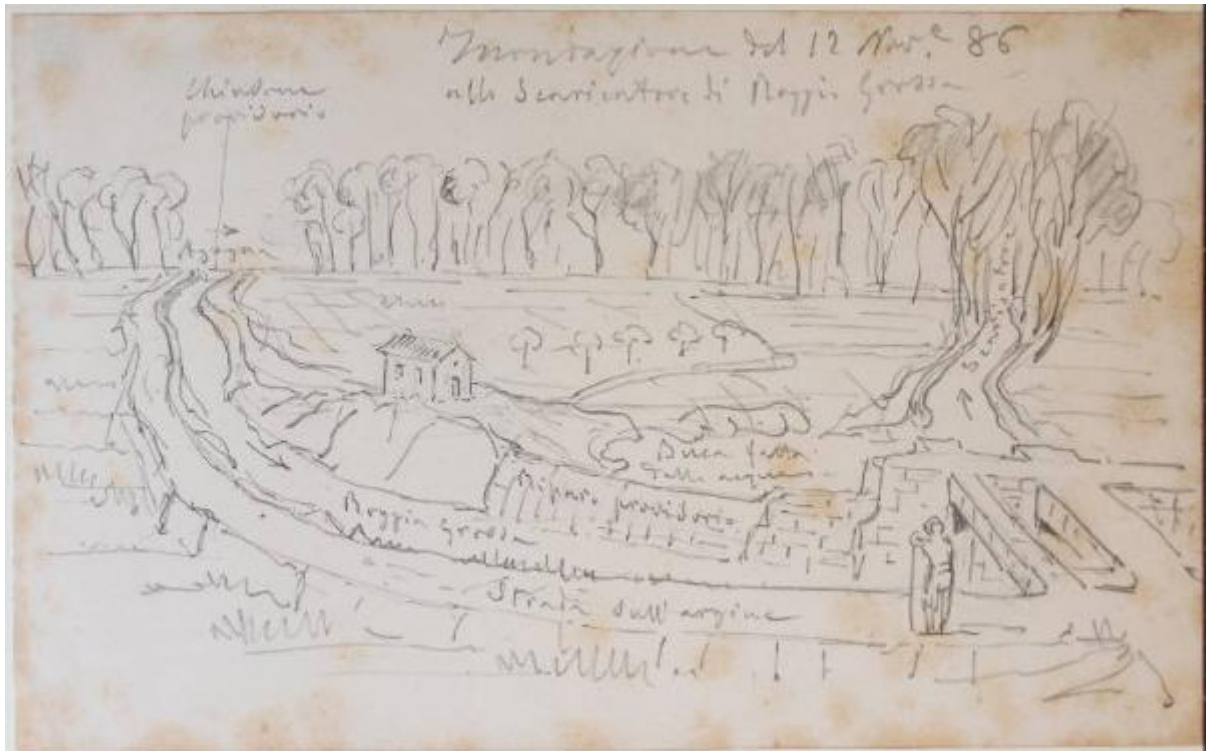 Inondazione del 12 Nov.e 86
allo Scaricatore di Roggia Grossa
Chiusura
provvisoria
Agogna
Scaricatore
Buca fatta
dalle acque
Riparo provvisorio
Roggia Grossa
Strada sull'argine